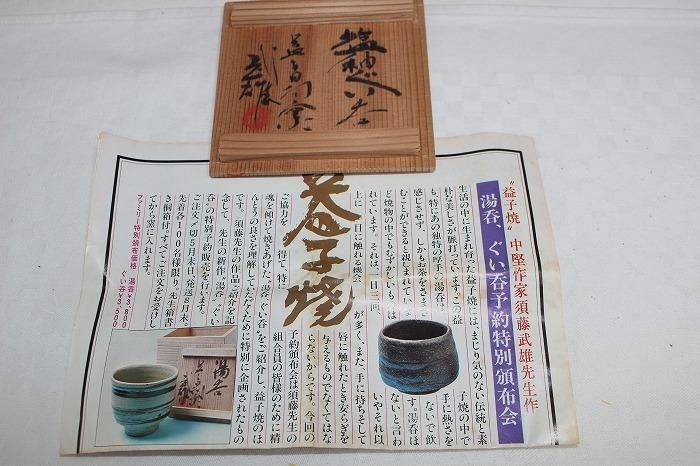 塩釉ぐい呑
益子門窯に
武雄
"益子焼" 中堅作家須藤武雄先生作
湯呑、ぐい呑予約特別頒布会
益子焼
生活の中に生まれ育った益子焼には、まじり気のない伝統と素
朴な美しさが脈打っています。この益
子焼の中で
も、特にあの独特の厚手の湯呑は、
手に熱さを
感じさせず、しかもお茶をさまさ
ないで飲
むことができると親しまれていま
す。湯呑は
ど焼物の中でもむずかしいものは
ないと言わ
れています。それは、一日三回
いやそれ以
上に、人目に触れる機会
が多く、また、手に持ちそして
唇に触れたとき安らぎを
与えるものでなくてはな
らないからです。今回の
予約頒布会は須藤先生の
ご協力を得て、特に
組合員の皆様のために精
魂を傾けて焼きあげた。湯呑、ぐい呑をご紹介し、益子焼のほ
んとうの良さを理解していただくために特別に企画されたもの
です。須藤先生の作品ご紹介を記
念して、先生の新作。湯呑、ぐい
呑の特別予約販売を行います。
ご注文〆切5月末日、発送8月末。
先着各100名様限り。先生箱書
き桐箱付。すべてご注文をお受けし
てから窯に入れます。
ファミリー特別頒布価格 湯呑¥3,800
ぐい呑¥3,500
湯呑